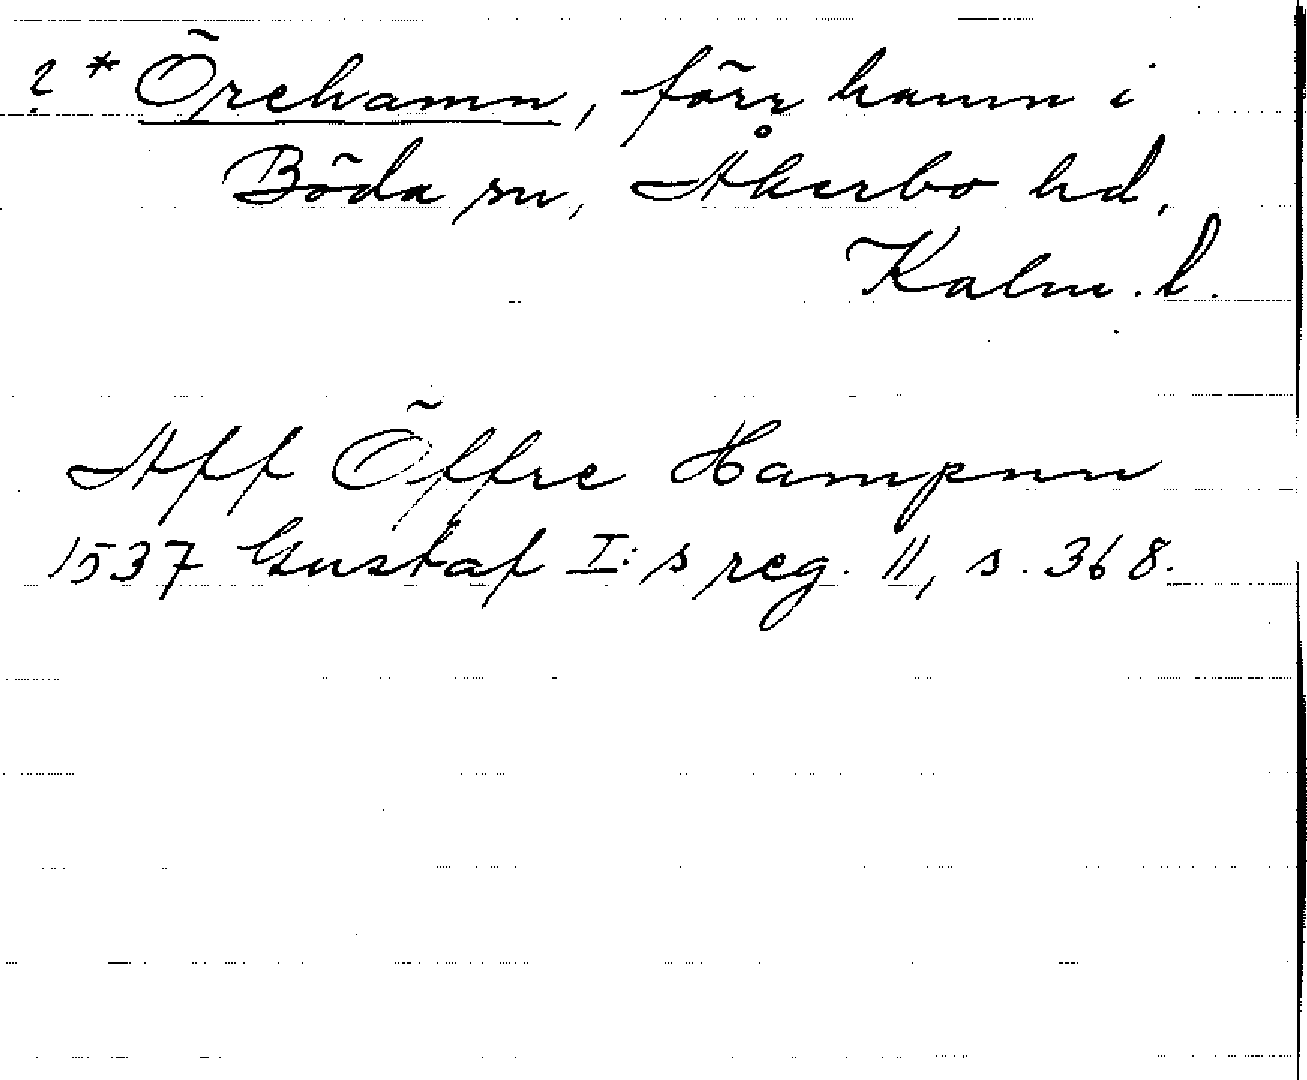 ? * Örehamn, förr hamn i
Böda sn, Åkerbo hd,
Kalm. l.
Aff Öffre Hampnn
1537 Gustaf I:s reg. 11, s. 368.